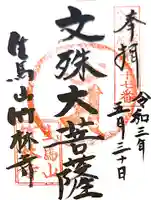 奉拝
令和三年
五月三十日
文殊大菩薩
生馬山竹林寺